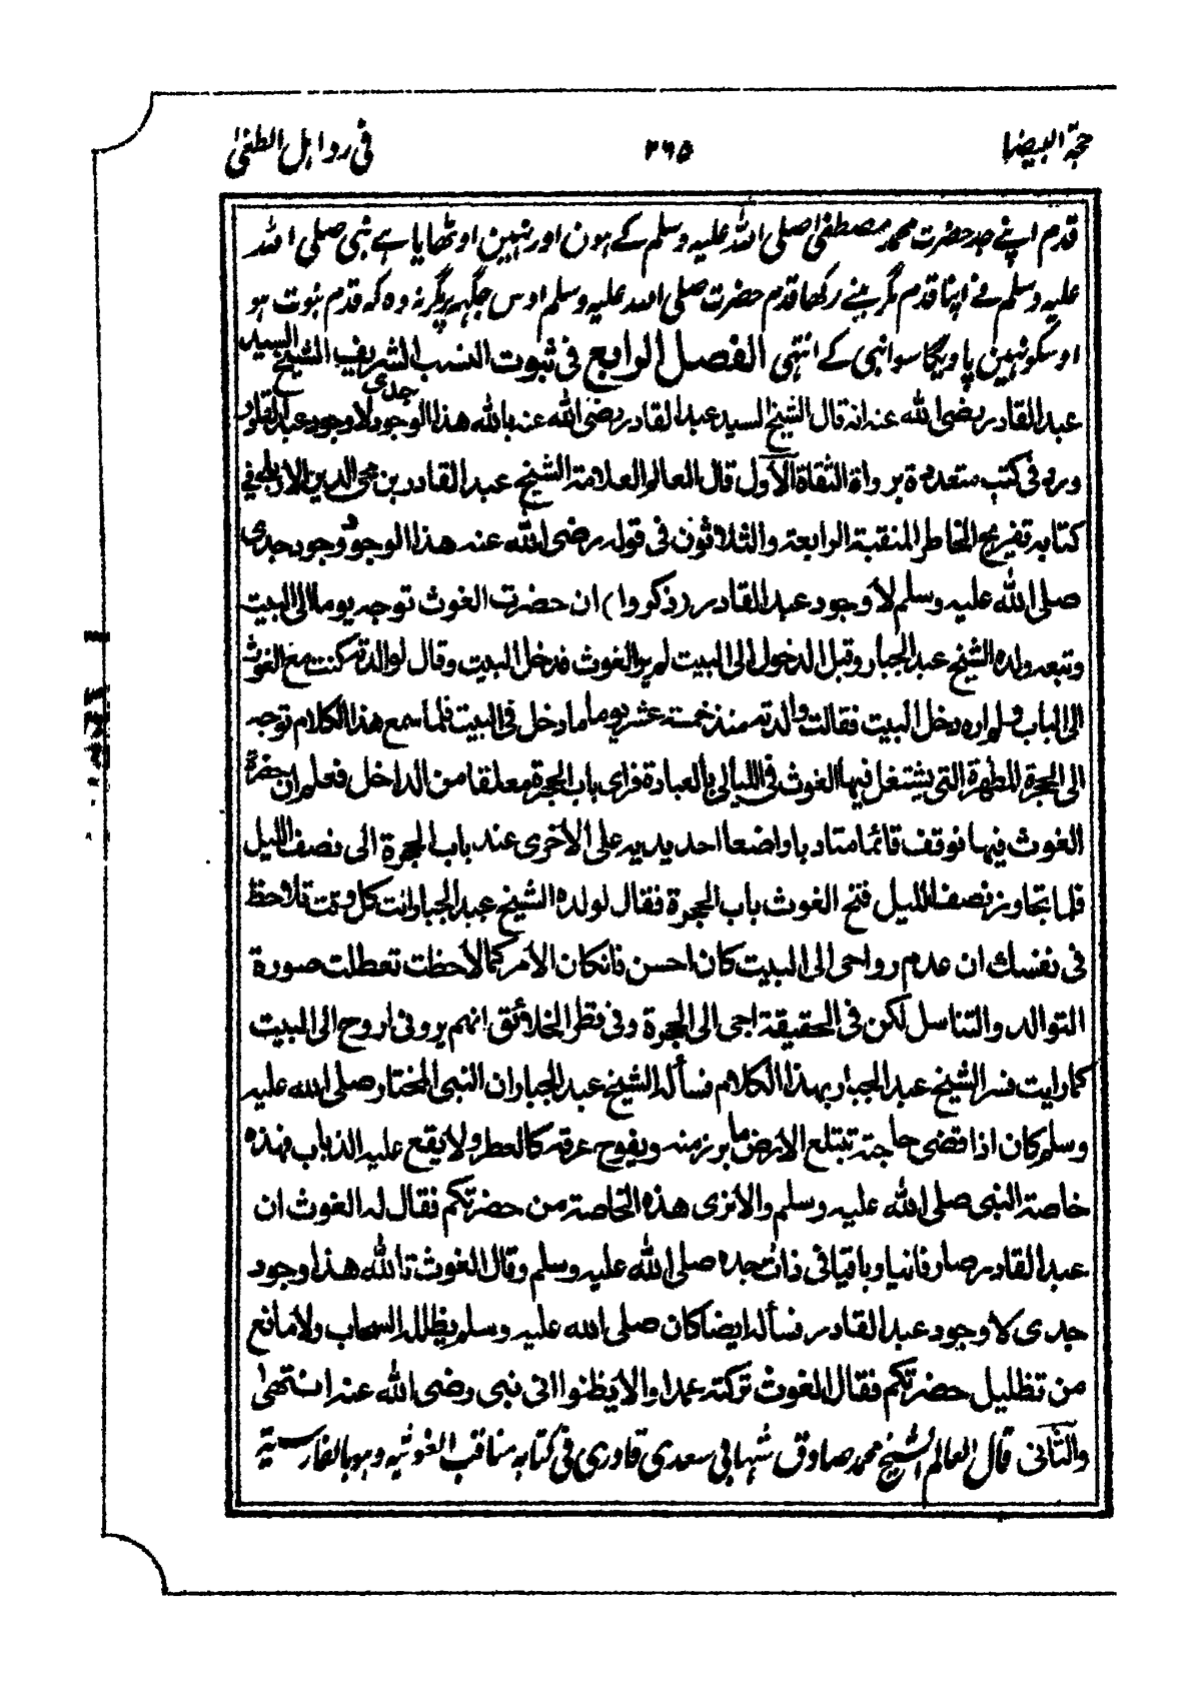 حجة البيضا ٢٦٥ فی رد اہل الطغیٰ
قدم اپنے جد حضرت محمد مصطفیٰ صلی اللہ علیہ وسلم کے ہون اور نہین اوٹھایا ہے نبی صلی اللہ
علیہ وسلم نے اپنا قدم مگر مینے رکھا قدم حضرت صلی اللہ علیہ وسلم اوس جگہہ پر مگر نہ وہ کہ قدم نبوت ہو
اوسکو نہین پاویگا سوا نبی کے انتہی الفصل الرابع فی ثبوت النسب الشریف الشیخ السید
عبد القادر رضی الله عنه انه قال الشیخ السید عبد القادر رضی الله عنه بالله هذا الوجود جدی لا وجود عبد القادر
وره فی کتب متعددة برواة الثقاة الاول قال العالم العلامة الشیخ عبد القادر بن محی الدین الاربلی فی
کتابه تفریح الخاطر المنقبة الرابعة والثلاثون فی قوله رضی الله عنه هذا الوجود وجود جدی
صلی الله علیه وسلم لا وجود عبد القادر (ذکروا) ان حضرت الغوث توجه یوما الی البیت
وتبعه ولده الشیخ عبد الجبار وقبل الدخول الی البیت لم یر الغوث فدخل البیت وقال لوالدته کنت مع الغوث
الی الباب ولم اره دخل البیت فقالت والدته منذ خمسة عشر یوما ما دخل فی البیت فلما سمع هذا الکلام توجه
الی الحجرة المطهرة التی یشتغل فیها الغوث فی اللیالی بالعبادة فرای باب الحجرة معلقا من الداخل فعلم ان حضرة
الغوث فیها فوقف قائما متادبا واضعا احد یدیه علی الاخری عند باب الحجرة الی نصف اللیل
فلما تجاوز نصف اللیل فتح الغوث باب الحجرة فقال لولده الشیخ عبد الجبار انت کل وقت تلاحظ
فی نفسك ان عدم رواحی الی البیت کان احسن فانکان الامر کما لاحظت تعطلت صورة
التوالد والتناسل لکن فی الحقیقة اجی الی الحجرة وفی نظر الخلائق انهم یرونی اروح الی البیت
کما رایت فسر الشیخ عبد الجبار بهذا الکلام فسأله الشیخ عبد الجبار ان النبی المختار صلی الله علیه
وسلم کان اذا قضی حاجته تبتلع الارض ما برز منه ویفوح عرقه کالعطر ولا یقع علیه الذباب فهذه
خاصة النبی صلی الله علیه وسلم والان نری هذه الخاصة من حضرتکم فقال له الغوث ان
عبد القادر صار فانیا وباقیا فی ذات جده صلی الله علیه وسلم وقال الغوث تالله هذا وجود
جدی لا وجود عبد القادر فسأله ایضا کان صلی الله علیه وسلم یظلله السحاب ولا مانع
من تظلیل حضرتکم فقال الغوث ترکته عمدا والا یظنوا انی نبی رضی الله عنه انتهیٰ
والثانی قال العالم الشیخ محمد صادق شہابی سعدی قادری فی کتابه مناقب الغوثیه وهو بالفارسیة